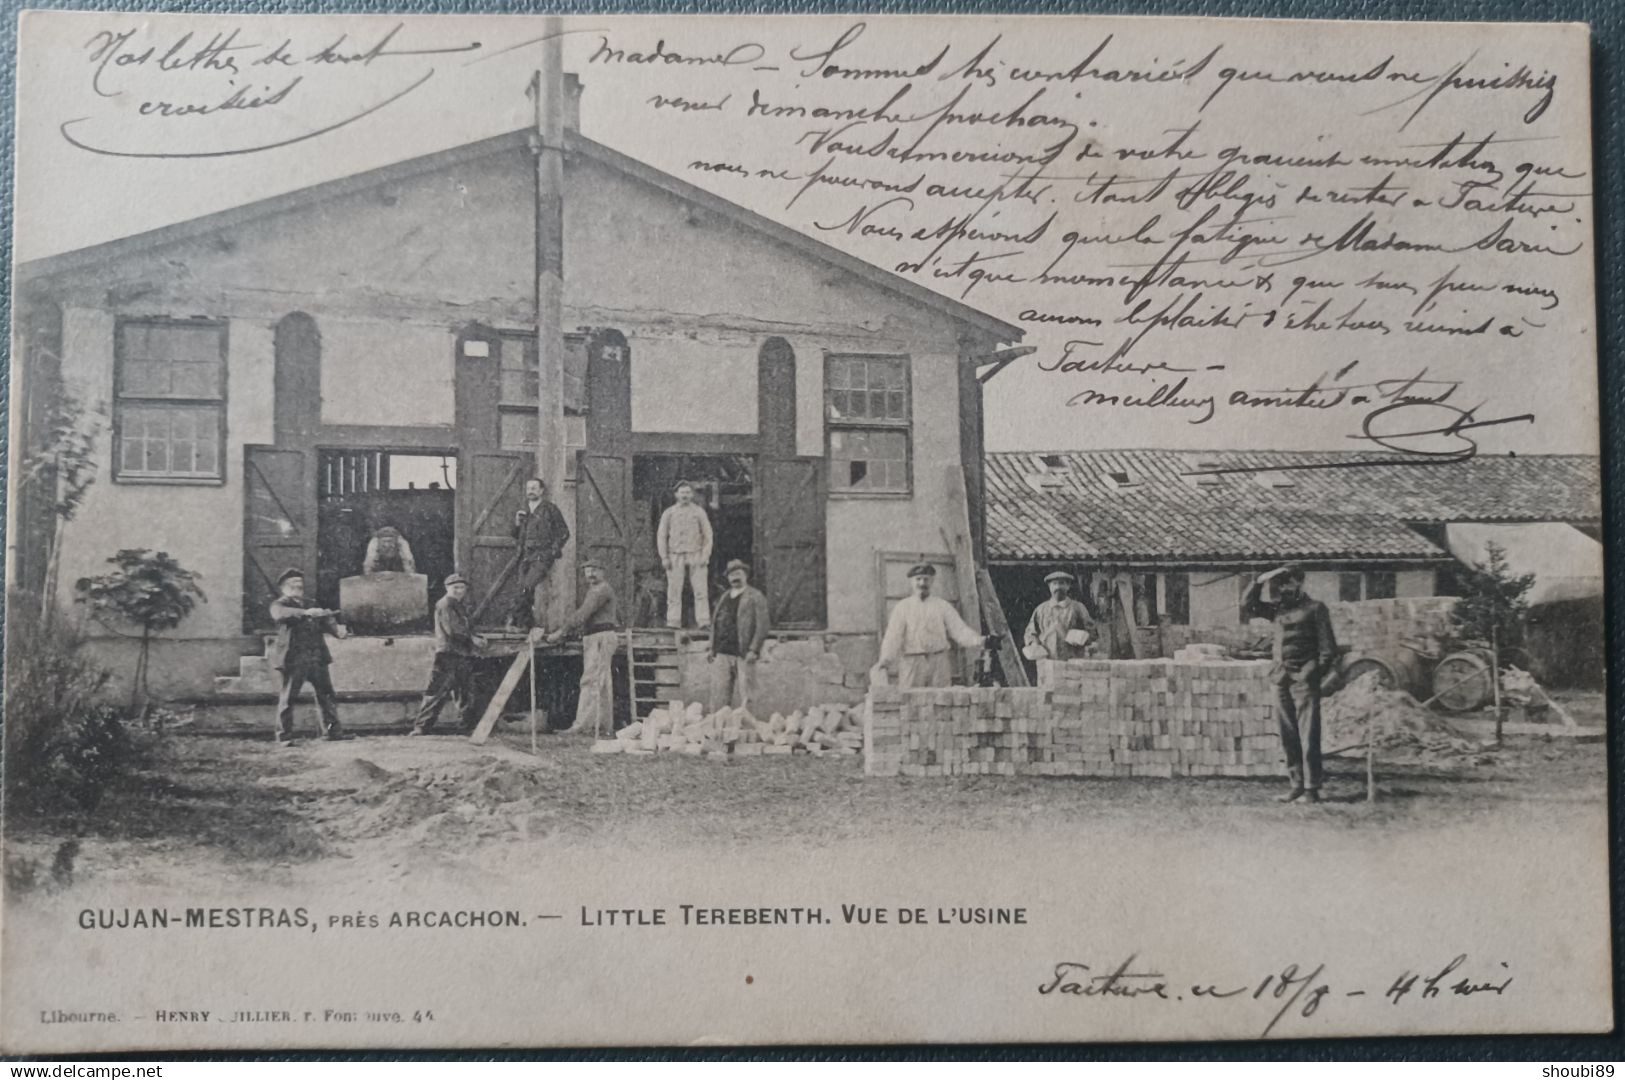 Nos lettres se sont
croisées
Madame – Sommes très contrariés que vous ne puissiez
venir dimanche prochain.
Vous remercions de votre gracieuse invitation que
nous ne pouvons accepter. étant obligés de rester à Taiture.
Nous espérons que la fatigue de Madame
n'est que momentanée & que sous peu nous
aurons le plaisir d'être tous réunis à
Taiture –
meilleures amitiés à tous
GUJAN-MESTRAS, PRÈS ARCACHON. — LITTLE TEREBENTH. VUE DE L'USINE
Taiture. ce 18/8 – 4 h soir
Libourne. – HENRY r. 44
shoubi89